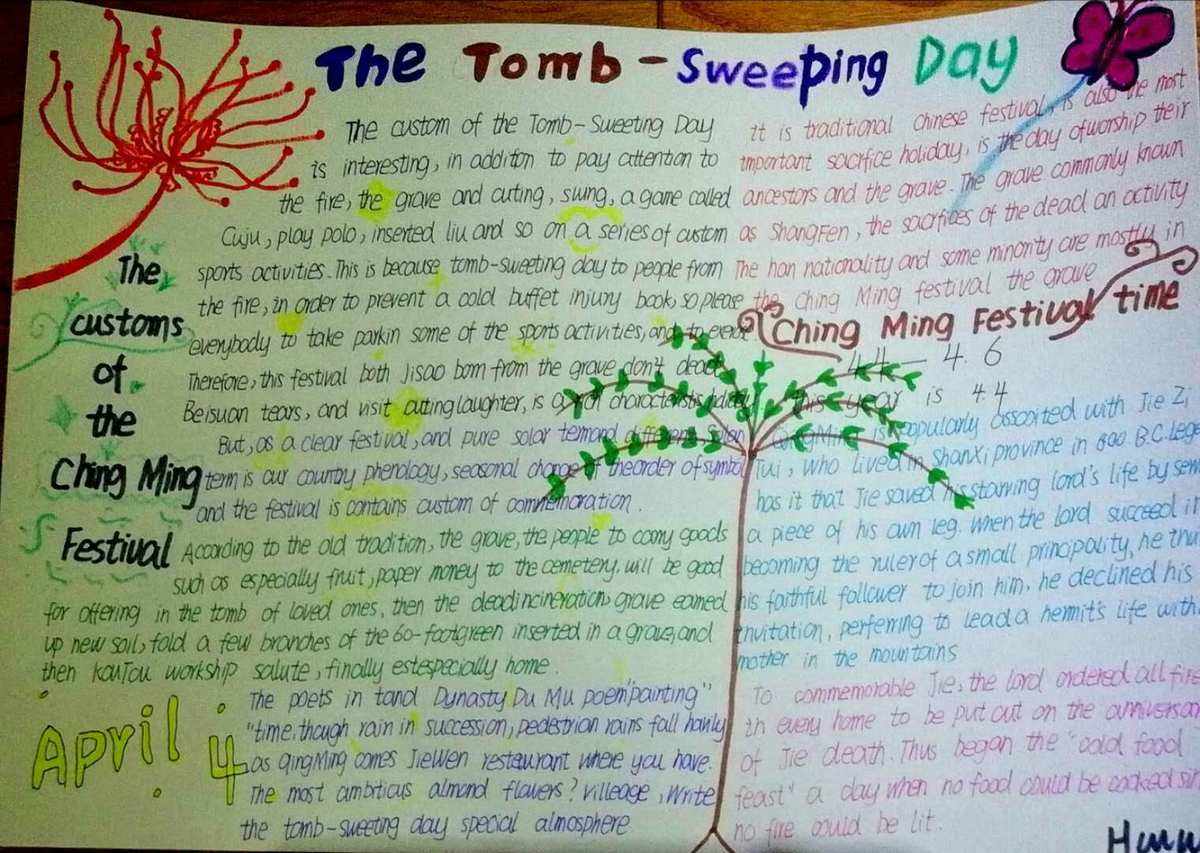 The Tomb-Sweeping Day
The custom of the Tomb-Sweeting Day
is interesting, in additon to pay attention to
the fire, the grave and cuting, swing, a game called
Cuju, play polo, inserted liu and so on a series of custom
sports activities. This is because tomb-sweeting day to people from
the fire, in order to prevent a cold buffet injury book, so please
everybody to take parkin some of the sports activities, and to
Therefore, this festival both Jisao born from the grave don't dead
Beisuan tears, and visit cuting laughter, is a characteristis
But, as a clear festival, and pure solar
term is our country phenology, seasonal change of theorder of symbol
and the festival is contains custom of commemoration.
According to the old tradition, the grave, the people to carry goods
such as especially fruit, paper money to the cemetery, will be good
for offering in the tomb of loved ones, then the deadincineration, grave earned
up new soil, fold a few branches of the 60-footgreen inserted in a grave, and
then KouTou workship salute, finally estespecially home.
The poets in tand Dynasty Du Mu poem "painting"
"time, though rain in succession, pedestrian rains fall hanly
as qingMing comes Jiewen restaurant where you have.
The most ambitious almond flavers? Villeage, write
the tomb-sweeting day special almosphere
The
customs
of
the
Ching Ming
Festival
April 4
It is traditional chinese festival, is also the most
important sacrifice holiday, is the day ofworship their
ancestors and the grave. The grave commonly known
as ShangFen, the sacrifices of the dead an activity
The han nationality and some minority are mostly in
the Ching Ming festival the grave
Ching Ming Festival time
4.4 — 4.6
this year is 4.4
is popularly associted with Jie Zi
Tui, who lived in Shanxi province in 600 B.C.
has it that Jie saved his starving lord's life by
a piece of his own leg. When the lord succeed
becoming the ruler of a small principality, he
his faithful follower to join him, he declined his
invitation, perferring to lead a hermit's life with
mother in the mountains
To commemorable Jie, the lord ordered all
in every home to be put out on the
of Jie death. Thus began the "cold food
feast" a day when no food could be cooked
no fire could be lit.